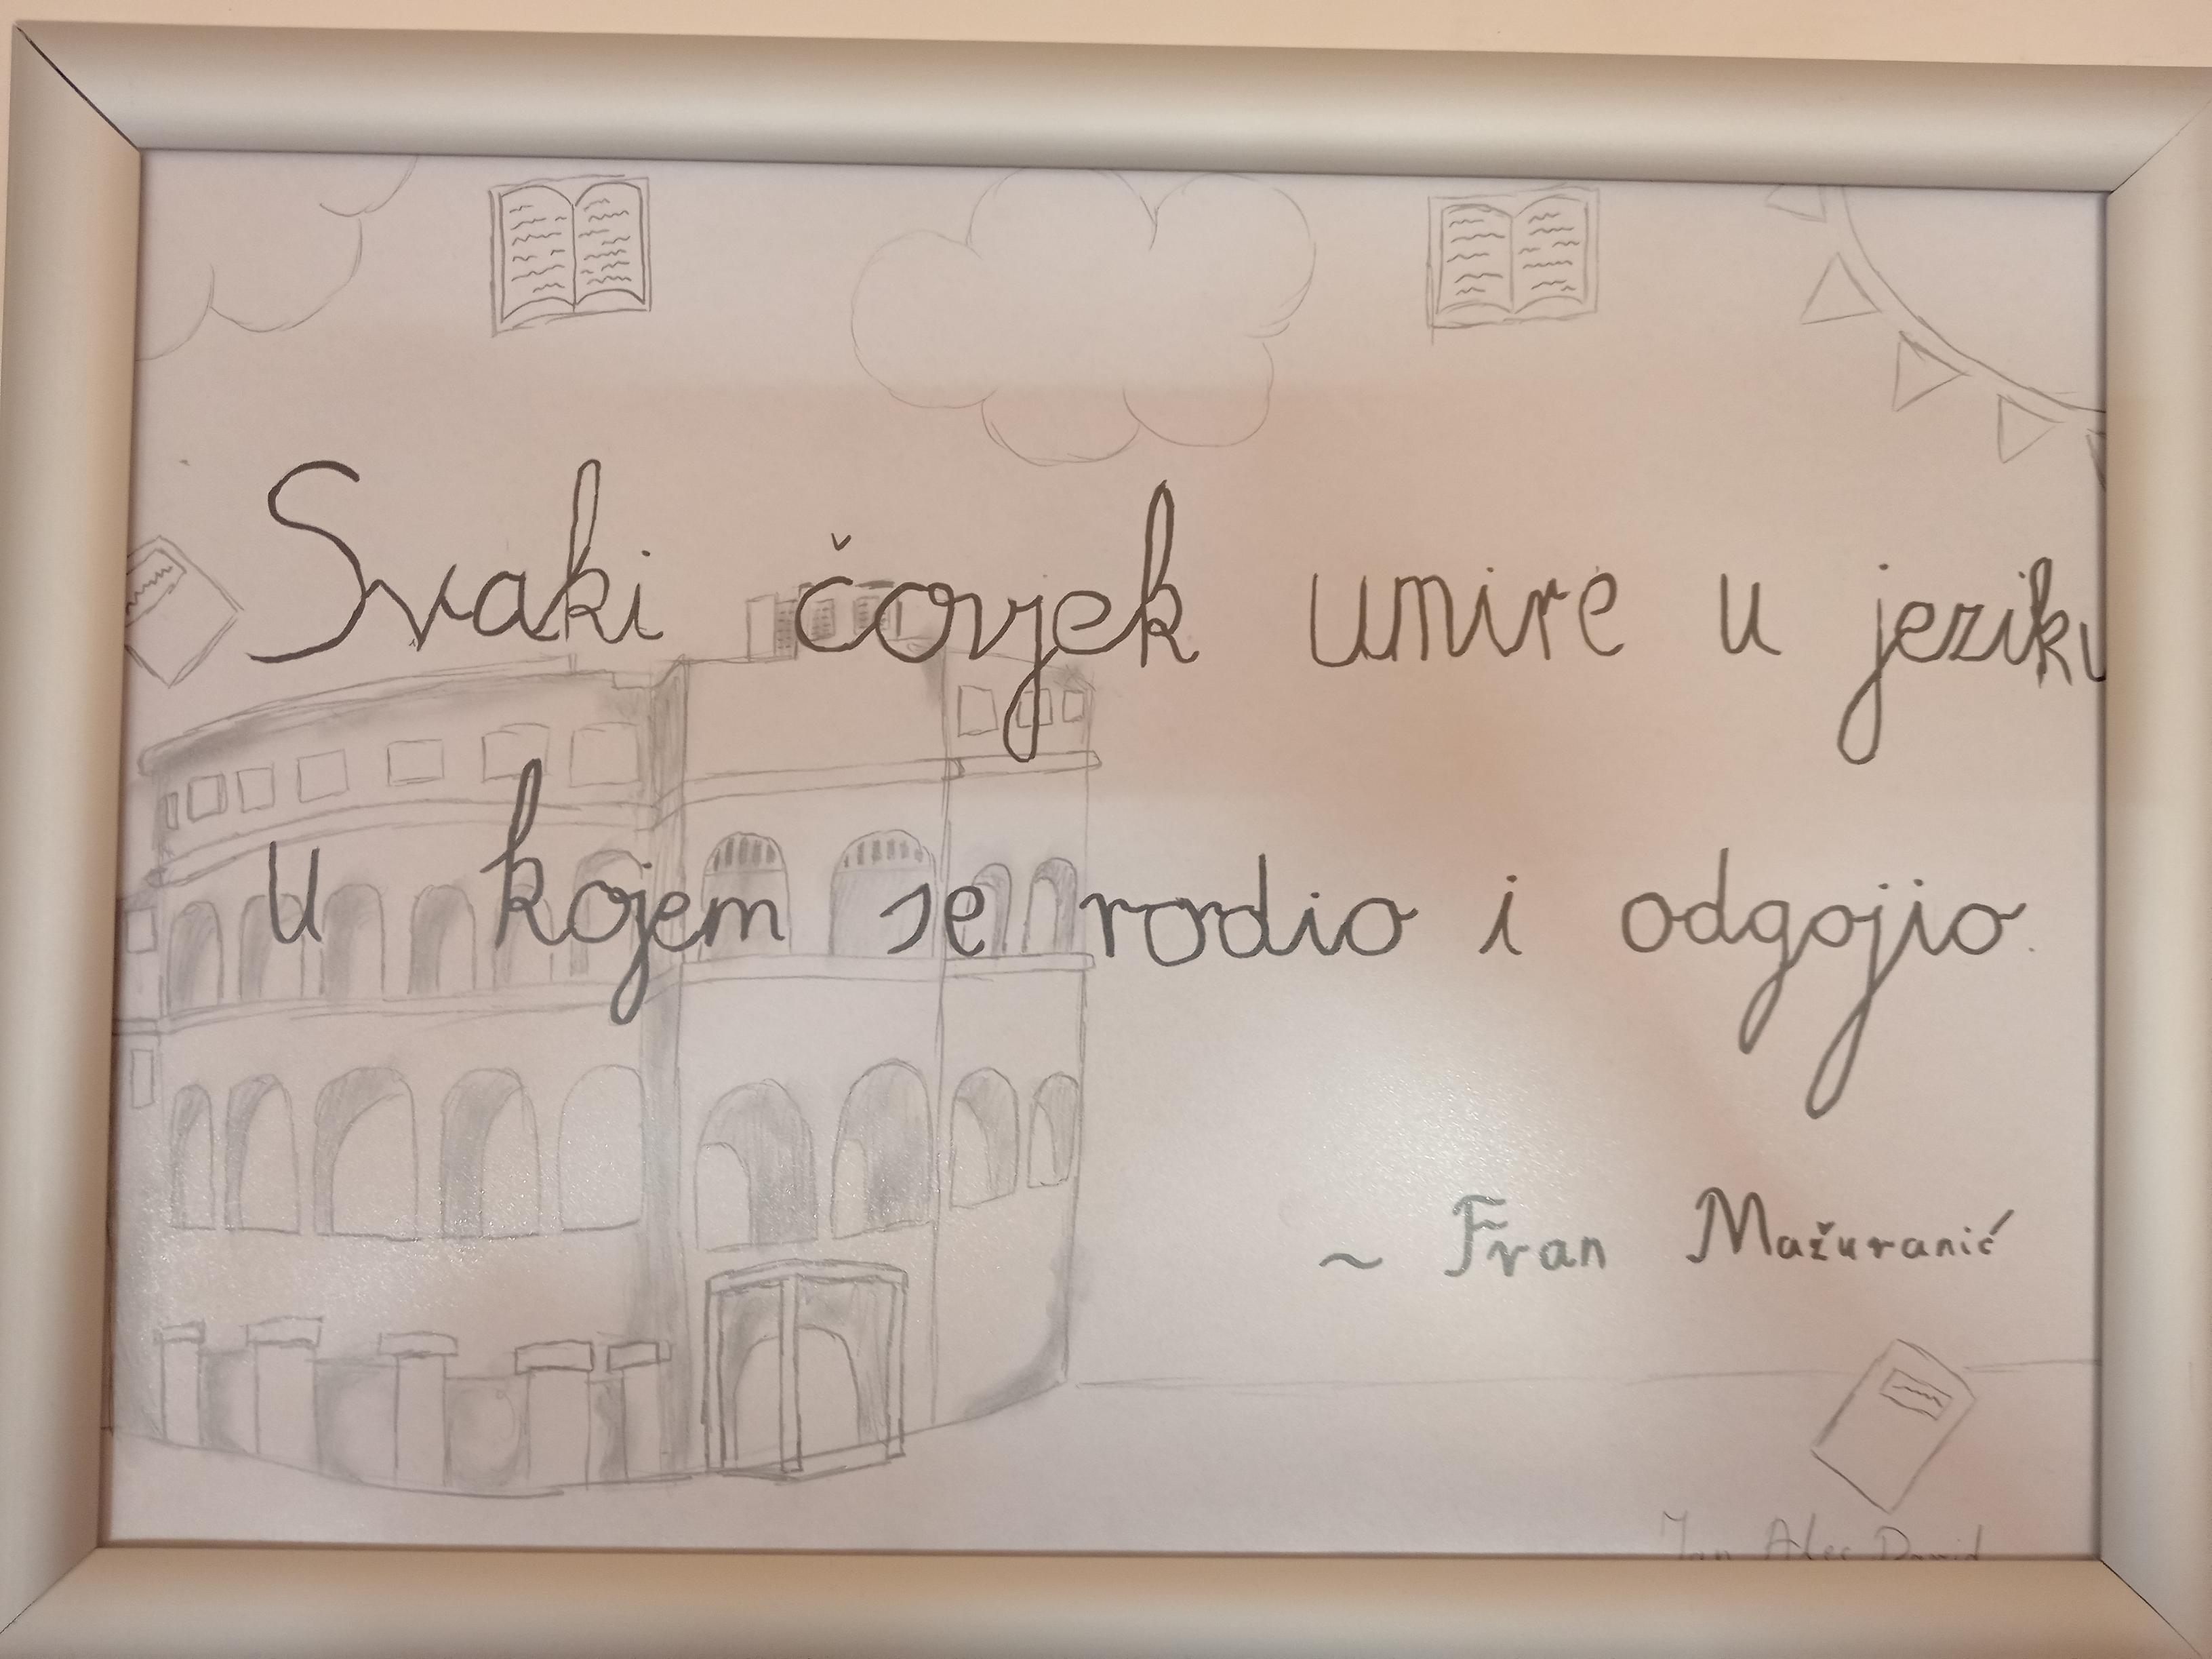 Svaki čovjek umire u jeziku
u kojem se rodio i odgojio.
~ Fran Mažuranić
Jan Alec David